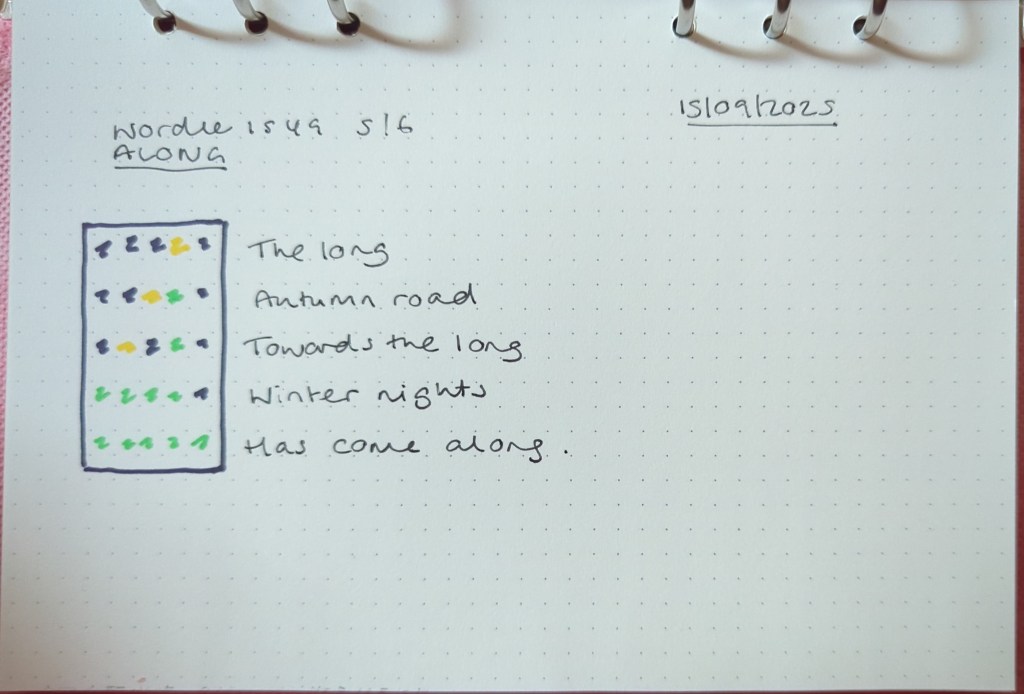 Wordle 1549 5/6
15/09/2025
ALONG
The long
Autumn road
Towards the long
Winter nights
Has come along.